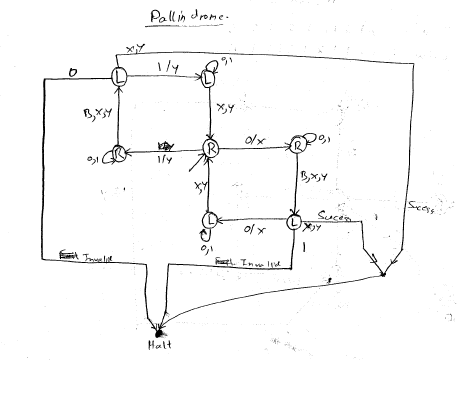 Pallindrome.
x,y
0
L
1/y
L
0,1
B,x,y
x,y
0,1
R
1/y
R
0/x
R
0,1
x,y
B,x,y
L
0/x
L
x,y
Success
Sucess
0,1
1
Invalid
Invalid
Halt